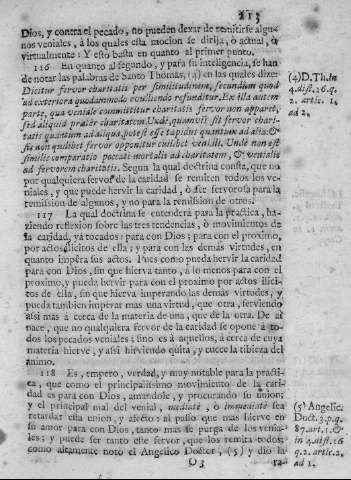 213
Dios, y contra el pecado, no pueden dexar de remitirse algu-
nos veniales, à los quales esta mocion se dirija, ò actual, ò
virtualmente: Y esto basta en quanto al primer punto.
116 En quanto al segundo, y para su inteligencia, se han
de notar las palabras de Santo Thomàs, (4) en las quales dize:
Dicitur fervor charitatis per similitudinem, secundum quod
ad exteriora quodammodo ebulliendo refunditur. Ex illa autem
parte, qua veniale committitur charitatis fervor non apparet,
sed aliquid præter charitatem. Unde, quamvis sit fervor chari-
tatis quantum ad aliqua, potest esse tapidus quantum ad alia: &
sic non quilibet fervor opponitur cuilibet veniali. Unde non est
similis comparatio peccati mortalis ad charitatem, & venialis
ad fervorem charitatis. Segun la qual doctrina consta, que no
por qualquiera fervor de la caridad se remiten todos los ve-
niales, y que puede hervir la caridad, ò ser fervorosa para la
remission de algunos, y no para la remission de otros.
117 La qual doctrina se entenderà para la practica, ha-
ziendo reflexion sobre las tres tendencias, ò movimientos de
la caridad, yà tocados: para con Dios; para con el proximo,
por actos ilicitos de ella; y para con las demàs virtudes, en
quanto impèra sus actos. Pues como pueda hervir la caridad
para con Dios, sin que hierva tanto, à lo menos para con el
proximo, y pueda hervir para con el proximo por actos ilici-
tos de ella, sin que hierva imperando las demàs virtudes, y
pueda tambien imperar mas una virtud, que otra, sirviendo
assi mas à cerca de la materia de una, que de la otra. De aì
nace, que no qualquiera fervor de la caridad se opone à to-
dos los pecados veniales; sino es à aquellos, à cerca de cuya
materia hierve, y assi hirviendo quita, y cuece la tibieza del
animo.
118 Es, empero, verdad, y muy notable para la practi-
ca, que como el principalissimo movimiento de la cari-
dad es para con Dios, amandole, y procurando su union;
y el principal mal del venial, mediatè, ò immediatè sea
retardar esta union, y afecto: al passo que mas hierve en
su amor para con Dios, tanto mas se purga de los venia-
les; y puede ser tanto este fervor, que los remita todos;
como altamente notò el Angelico Doctor, (5) y diò la
O3 ra-
(4) D. Th. in
4. dist. 16. q.
2. artic. 1.
ad 2.
(5) Angelic.
Doct. 3. p. q.
87. art. 1. &
in 4. dist. 16
q. 2. artic. 2.
ad 1.